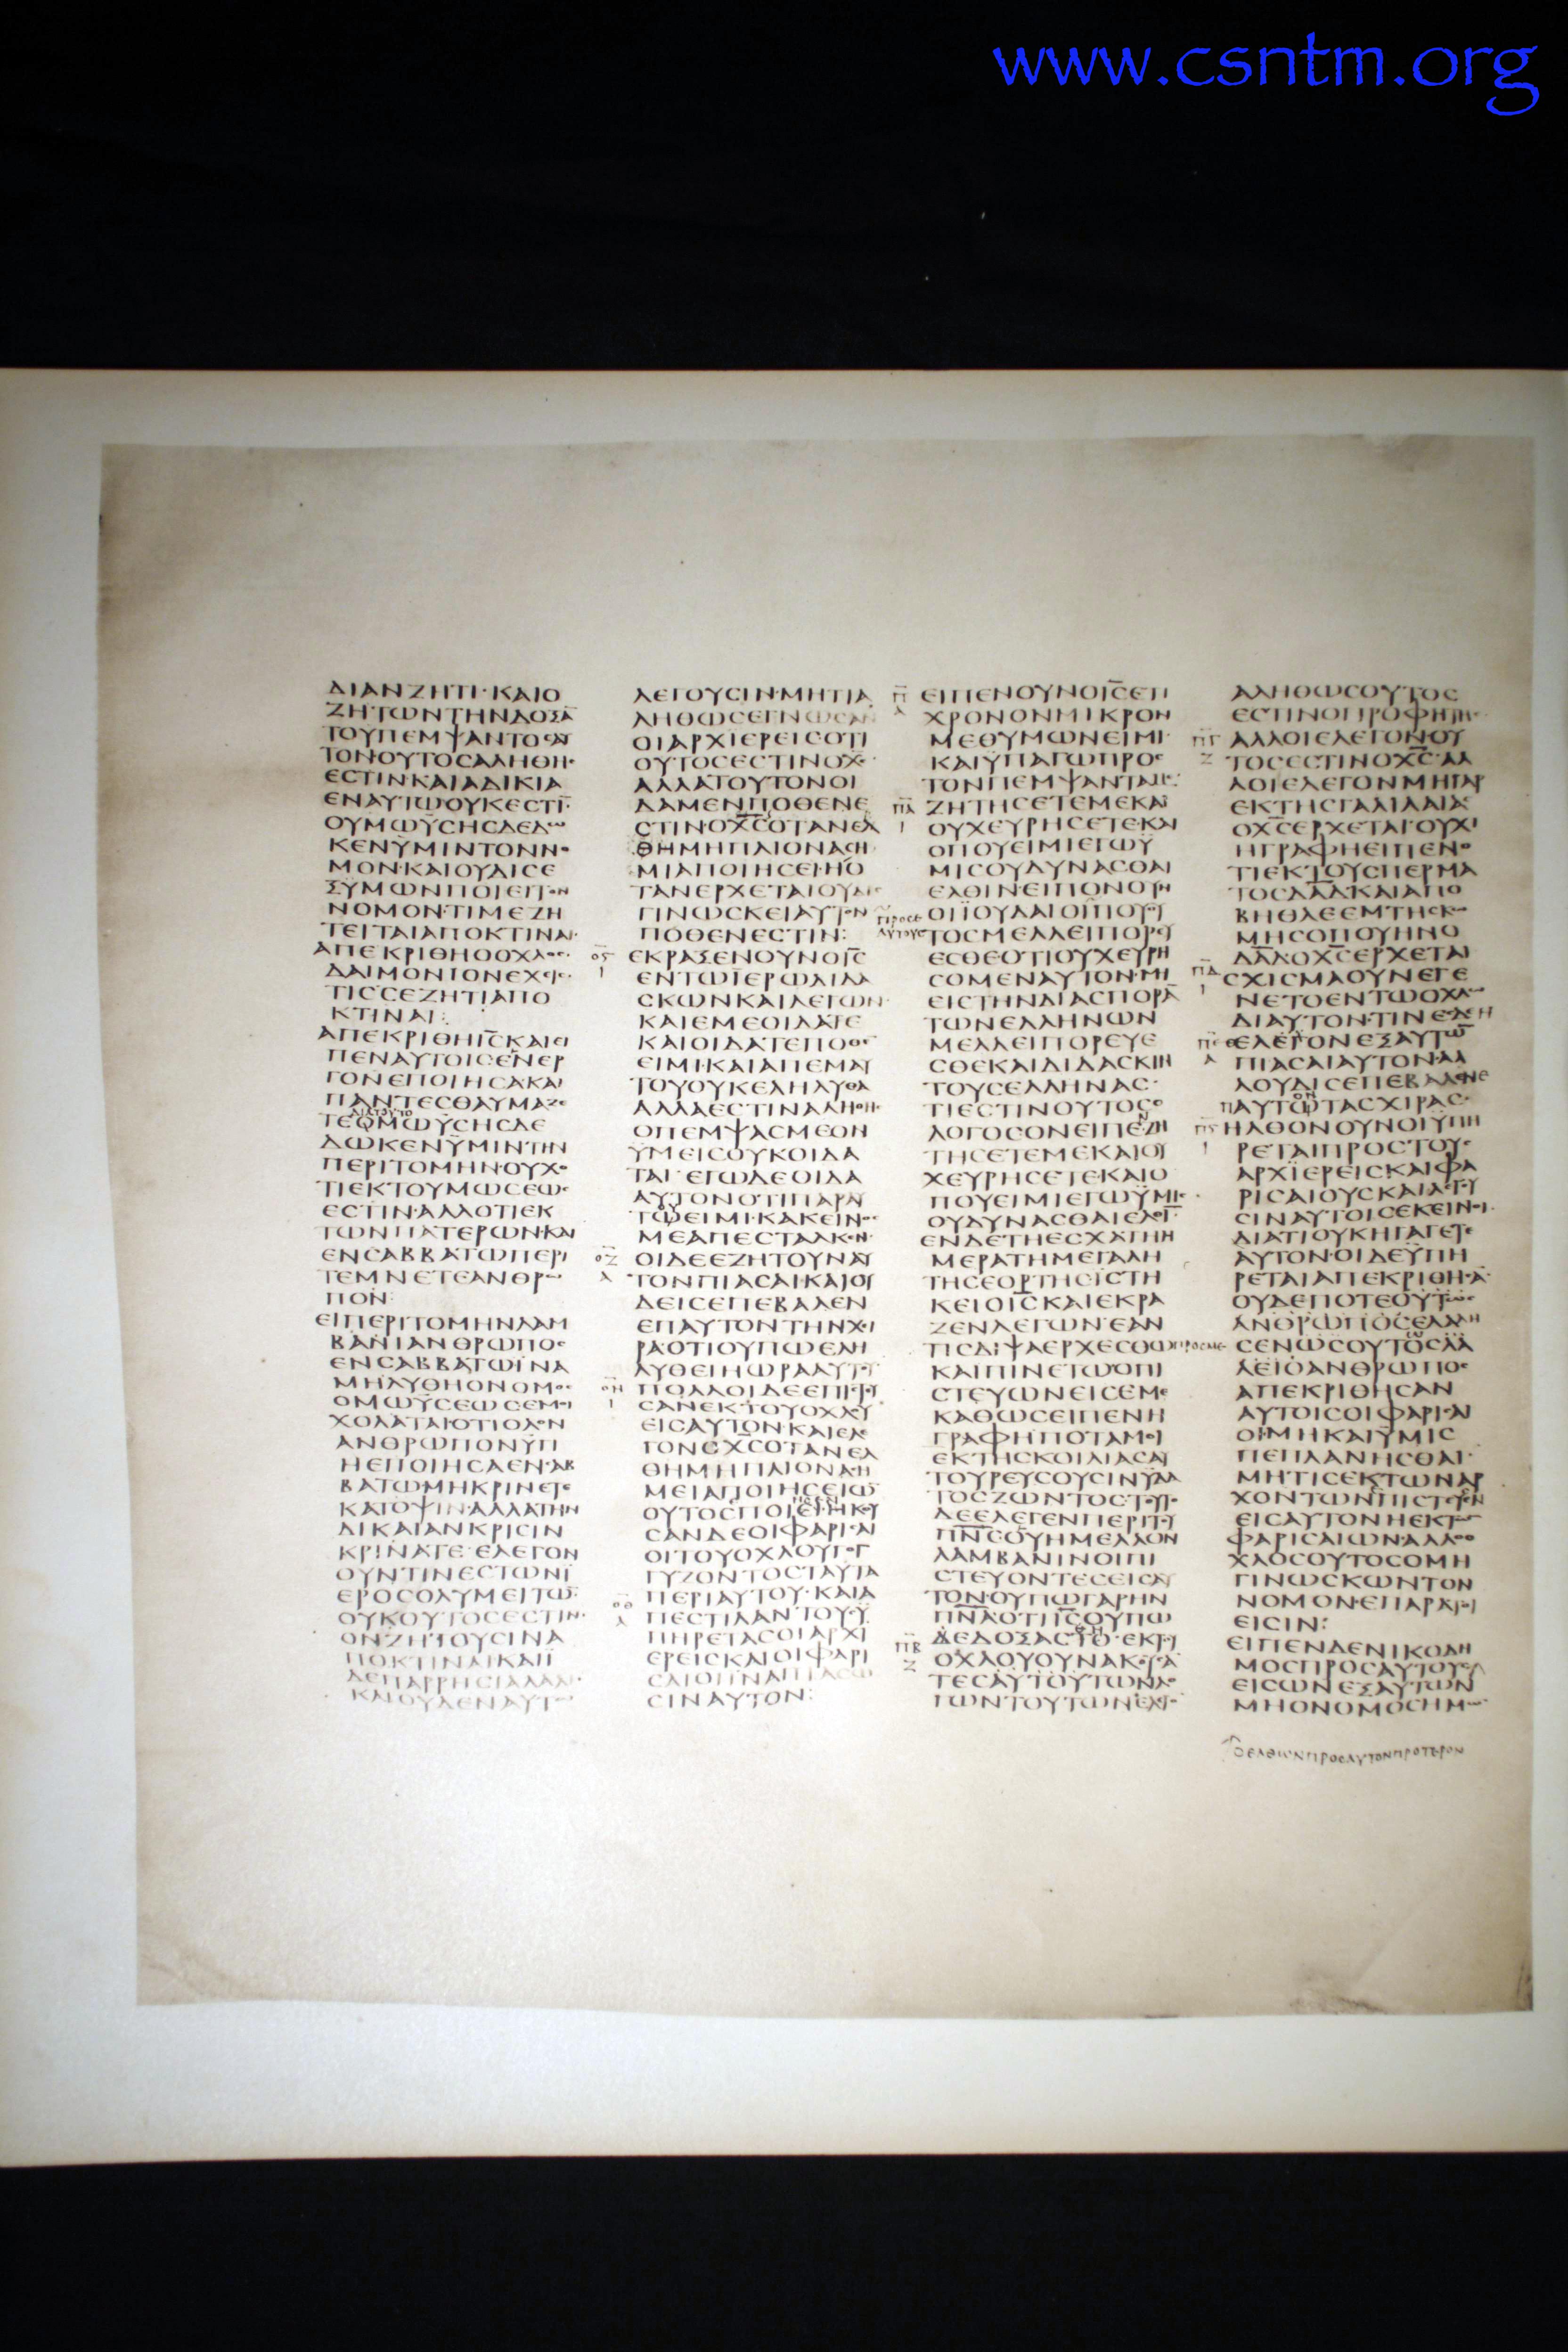 www.csntm.org
ΔΙΑΝΖΗΤΙ·ΚΑΙΟ
ΖΗΤΩΝΤΗΝΔΟΞΑ̅
ΤΟΥΠΕΜΨΑΝΤΟΣΑΥ
ΤΟΝ·ΟΥΤΟΣΑΛΗΘΗΣ
ΕΣΤΙΝ·ΚΑΙΑΔΙΚΙΑ
ΕΝΑΥΤΩΟΥΚΕΣΤΙ̅
ΟΥΜΩΫΣΗΣΔΕΔΩ
ΚΕΝΫΜΙΝΤΟΝΝΟ
ΜΟΝ·ΚΑΙΟΥΔΙΣΕ
ΞΫΜΩΝΠΟΙΕΙΤΟΝ
ΝΟΜΟΝ·ΤΙΜΕΖΗ
ΤΕΙΤΑΙΑΠΟΚΤΙΝΑΙ
ΑΠΕΚΡΙΘΗΟΟΧΛΟΣ
ΔΑΙΜΟΝΙΟΝΕΧΕΙΣ
ΤΙΣΣΕΖΗΤΙΑΠΟ
ΚΤΙΝΑΙ:
ΑΠΕΚΡΙΘΗΙ̅Σ̅ΚΑΙΕΙ
ΠΕΝΑΥΤΟΙΣΕΝΕΡ
ΓΟΝΕΠΟΙΗΣΑΚΑΙ
ΠΑΝΤΕΣΘΑΥΜΑΖΕ
ΔΙΑΤΟΥΤΟ
ΤΕΟΜΩΫΣΗΣΔΕ
ΔΩΚΕΝΫΜΙΝΤΗΝ
ΠΕΡΙΤΟΜΗΝ·ΟΥΧΟ
ΤΙΕΚΤΟΥΜΩΣΕΩΣ
ΕΣΤΙΝ·ΑΛΛΟΤΙΕΚ
ΤΩΝΠΑΤΕΡΩΝ·ΚΑΙ
ΕΝΣΑΒΒΑΤΩΠΕΡΙ
ΤΕΜΝΕΤΕΑΝΘΡΩ
ΠΟΝ:
ΕΙΠΕΡΙΤΟΜΗΝΛΑΜ
ΒΑΝΙΑΝΘΡΩΠΟΣ
ΕΝΣΑΒΒΑΤΩΪΝΑ
ΜΗΛΥΘΗΟΝΟΜΟΣ
ΟΜΩΫΣΕΩΣΕΜΟΙ
ΧΟΛΑΤΑΙΟΤΙΟΛΟΝ
ΑΝΘΡΩΠΟΝΫΓΙ
ΗΕΠΟΙΗΣΑΕΝΣΑΒ
ΒΑΤΩΜΗΚΡΙΝΕΤΕ
ΚΑΤΟΨΙΝ·ΑΛΛΑΤΗΝ
ΔΙΚΑΙΑΝΚΡΙΣΙΝ
ΚΡΙΝΑΤΕ·ΕΛΕΓΟΝ
ΟΥΝΤΙΝΕΣΤΩΝΪ
ΕΡΟΣΟΛΥΜΕΙΤΩ̅
ΟΥΚΟΥΤΟΣΕΣΤΙΝ
ΟΝΖΗΤΟΥΣΙΝΑ
ΠΟΚΤΙΝΑΙΚΑΙΪ
ΔΕΠΑΡΡΗΣΙΑΛΑΛΙ
ΚΑΙΟΥΔΕΝΑΥΤΩ
ΛΕΓΟΥΣΙΝ·ΜΗΤΙΑ
ΛΗΘΩΣΕΓΝΩΣΑΝ
ΟΙΑΡΧΙΕΡΕΙΣΟΤΙ
ΟΥΤΟΣΕΣΤΙΝΟΧ̅Σ̅
ΑΛΛΑΤΟΥΤΟΝΟΙ
ΔΑΜΕΝΠΟΘΕΝΕ
ΣΤΙΝ·ΟΧ̅Σ̅ΟΤΑΝΕΛ
ΘΗΜΗΠΛΙΟΝΑΣΗ
ΜΙΑΠΟΙΗΣΕΙ·ΗΟ
ΤΑΝΕΡΧΕΤΑΙΟΥΔΙΣ
ΓΙΝΩΣΚΕΙΑΥΤΟΝ
ΠΟΘΕΝΕΣΤΙΝ:
ΟϚ Ι
ΕΚΡΑΞΕΝΟΥΝΟΙ̅Σ̅
ΕΝΤΩΪΕΡΩΔΙΔΑ
ΣΚΩΝΚΑΙΛΕΓΩΝ
ΚΑΙΕΜΕΟΙΔΑΤΕ
ΚΑΙΟΙΔΑΤΕΠΟΘΕΝ
ΕΙΜΙ·ΚΑΙΑΠΕΜΑΥ
ΤΟΥΟΥΚΕΛΗΛΥΘΑ
ΑΛΛΑΕΣΤΙΝΑΛΗΘΗΣ
ΟΠΕΜΨΑΣΜΕΟΝ
ΫΜΕΙΣΟΥΚΟΙΔΑ
ΤΑΙ·ΕΓΩΔΕΟΙΔΑ
ΑΥΤΟΝΟΤΙΠΑΡΑΥ
ΤΩΕΙΜΙ·ΚΑΚΕΙΝΟΣ
ΜΕΑΠΕΣΤΑΛΚΕΝ
ΟΖ Α
ΟΙΔΕΕΖΗΤΟΥΝΑΥ
ΤΟΝΠΙΑΣΑΙ·ΚΑΙΟΥ
ΔΕΙΣΕΠΕΒΑΛΕΝ
ΕΠΑΥΤΟΝΤΗΝΧΙ
ΡΑΟΤΙΟΥΠΩΕΛΗ
ΛΥΘΕΙΗΩΡΑΑΥΤΟΥ
ΟΗ Ι
ΠΟΛΛΟΙΔΕΕΠΙΣΤΕΥ
ΣΑΝΕΚΤΟΥΟΧΛΟΥ
ΕΙΣΑΥΤΟΝ·ΚΑΙΕΛΕ
ΓΟΝΟΧ̅Σ̅ΟΤΑΝΕΛ
ΘΗΜΗΠΛΙΟΝΑΣΗ
ΜΕΙΑΠΟΙΗΣΕΙΩ̅
ΟΥΤΟΣΠΟΙΕΙ·ΗΚΟΥ
ΣΑΝΔΕΟΙΦΑΡΙΣΑΙ
ΟΙΤΟΥΟΧΛΟΥΓΟΓ
ΓΥΖΟΝΤΟΣΤΑΥΤΑ
ΠΕΡΙΑΥΤΟΥ·ΚΑΙΑ
ΟΘ Α
ΠΕΣΤΙΛΑΝΤΟΥΣΫ
ΠΗΡΕΤΑΣΟΙΑΡΧΙ
ΕΡΕΙΣΚΑΙΟΙΦΑΡΙ
ΣΑΙΟΙΪΝΑΠΙΑΣΩ
ΣΙΝΑΥΤΟΝ:
Π Α
ΕΙΠΕΝΟΥΝΟΙ̅Σ̅ΕΤΙ
ΧΡΟΝΟΝΜΙΚΡΟΝ
ΜΕΘΥΜΩΝΕΙΜΙ·
ΚΑΙΫΠΑΓΩΠΡΟΣ
ΤΟΝΠΕΜΨΑΝΤΑΜΕ:
ΠΑ Ι
ΖΗΤΗΣΕΤΕΜΕΚΑΙ
ΟΥΧΕΥΡΗΣΕΤΕ·ΚΑΙ
ΟΠΟΥΕΙΜΙΕΓΩΫ
ΜΙΣΟΥΔΥΝΑΣΘΑΙ
ΕΛΘΙΝ·ΕΙΠΟΝΟΥΝ
ΠΡΟΣΕ
ΑΥΤΟΥΣ
ΟΙΪΟΥΔΑΙΟΙΠΟΥΟΥ
ΤΟΣΜΕΛΛΕΙΠΟΡΕΥ
ΕΣΘΕΟΤΙΟΥΧΕΥΡΗ
ΣΟΜΕΝΑΥΤΟΝ·ΜΗ
ΕΙΣΤΗΝΔΙΑΣΠΟΡΑ̅
ΤΩΝΕΛΛΗΝΩΝ
ΜΕΛΛΕΙΠΟΡΕΥΕ
ΣΘΕΚΑΙΔΙΔΑΣΚΙΝ
ΤΟΥΣΕΛΛΗΝΑΣ·
ΤΙΕΣΤΙΝΟΥΤΟΣΟ
ΛΟΓΟΣΟΝΕΙΠΕΖΗ
ΤΗΣΕΤΕΜΕΚΑΙΟΥ
ΧΕΥΡΗΣΕΤΕ·ΚΑΙΟ
ΠΟΥΕΙΜΙΕΓΩΫΜΙΣ
ΟΥΔΥΝΑΣΘΑΙΕΛΘΙ̅
ΕΝΔΕΤΗΕΣΧΑΤΗΗ
ΜΕΡΑΤΗΜΕΓΑΛΗ
ΤΗΣΕΟΡΤΗΣΪΣΤΗ
ΚΕΙΟΙ̅Σ̅ΚΑΙΕΚΡΑ
ΖΕΝΛΕΓΩΝ·ΕΑΝ
ΤΙΣΔΙΨΑΕΡΧΕΣΘΩ ΠΡΟΣΜΕ
ΚΑΙΠΙΝΕΤΩ·ΟΠΙ
ΣΤΕΥΩΝΕΙΣΕΜΕ
ΚΑΘΩΣΕΙΠΕΝΗ
ΓΡΑΦΗ·ΠΟΤΑΜΟΙ
ΕΚΤΗΣΚΟΙΛΙΑΣΑΥ
ΤΟΥΡΕΥΣΟΥΣΙΝΫΔΑ
ΤΟΣΖΩΝΤΟΣ·ΤΟΥΤΟ
ΔΕΕΛΕΓΕΝΠΕΡΙΤΟΥ
Π̅Ν̅Σ̅ΟΥΗΜΕΛΛΟΝ
ΛΑΜΒΑΝΙΝΟΙΠΙ
ΣΤΕΥΟΝΤΕΣΕΙΣΑΥ
ΤΟΝ·ΟΥΠΩΓΑΡΗΝ
Π̅Ν̅Α̅ΟΤΙΙ̅Σ̅ΟΥΠΩ
ΔΕΔΟΞΑΣΤΟ·ΕΚΤΟΥ
ΠΒ Ζ
ΟΧΛΟΥΟΥΝΑΚΟΥΣΑ
ΤΕΣΑΥΤΟΥΤΩΝΛΟ
ΓΩΝΤΟΥΤΩΝΕΛΕΓΟ
ΑΛΗΘΩΣΟΥΤΟΣ
ΕΣΤΙΝΟΠΡΟΦΗΤΗΣ·
ΠΓ Ζ
ΑΛΛΟΙΕΛΕΓΟΝΟΥ
ΤΟΣΕΣΤΙΝΟΧ̅Σ̅·ΑΛ
ΛΟΙΕΛΕΓΟΝΜΗΓΑΡ
ΕΚΤΗΣΓΑΛΙΛΑΙΑΣ
ΟΧ̅Σ̅ΕΡΧΕΤΑΙ·ΟΥΧΙ
ΗΓΡΑΦΗΕΙΠΕΝΟ
ΤΙΕΚΤΟΥΣΠΕΡΜΑ
ΤΟΣΔ̅Α̅Δ̅·ΚΑΙΑΠΟ
ΒΗΘΛΕΕΜΤΗΣΚΩ
ΜΗΣΟΠΟΥΗΝΟ
Δ̅Α̅Δ̅·ΟΧ̅Σ̅ΕΡΧΕΤΑΙ
ΠΔ Ι
ΣΧΙΣΜΑΟΥΝΕΓΕ
ΝΕΤΟΕΝΤΩΟΧΛΩ
ΔΙΑΥΤΟΝ·ΤΙΝΕΣΔΕΗ
ΠΕ Α
ΕΛΕΓΟΝΕΞΑΥΤΩ̅
ΠΙΑΣΑΙΑΥΤΟΝ·ΑΛ
ΛΟΥΔΙΣΕΠΕΒΑΛΕΝΕ
ΠΑΥΤΩΤΑΣΧΙΡΑΣ·
ΠϚ Ι
ΗΛΘΟΝΟΥΝΟΙΫΠΗ
ΡΕΤΑΙΠΡΟΣΤΟΥΣ
ΑΡΧΪΕΡΕΙΣΚΑΙΦΑ
ΡΙΣΑΙΟΥΣΚΑΙΛΕΓΟΥ
ΣΙΝΑΥΤΟΙΣΕΚΕΙΝΟΙ
ΔΙΑΤΙΟΥΚΗΓΑΓΕΤΕ
ΑΥΤΟΝ·ΟΙΔΕΫΠΗ
ΡΕΤΑΙΑΠΕΚΡΙΘΗΣΑ̅
ΟΥΔΕΠΟΤΕΟΥΤΩΣ
ΑΝΘΡΩΠΟΣΕΛΑΛΗ
ΣΕΝΩΣΟΥΤΟΣΛΑ
ΛΕΙΟΑΝΘΡΩΠΟΣ
ΑΠΕΚΡΙΘΗΣΑΝ
ΑΥΤΟΙΣΟΙΦΑΡΙΣΑΙ
ΟΙ·ΜΗΚΑΙΫΜΙΣ
ΠΕΠΛΑΝΗΣΘΑΙ·
ΜΗΤΙΣΕΚΤΩΝΑΡ
ΧΟΝΤΩΝΠΙΣΤΕΥΕΙΝ
ΕΙΣΑΥΤΟΝΗΕΚΤΩ
ΦΑΡΙΣΑΙΩΝ·ΑΛΛΟΟ
ΧΛΟΣΟΥΤΟΣΟΜΗ
ΓΙΝΩΣΚΩΝΤΟΝ
ΝΟΜΟΝ·ΕΠΑΡΑΤΟΙ
ΕΙΣΙΝ:
ΕΙΠΕΝΔΕΝΙΚΟΔΗ
ΜΟΣΠΡΟΣΑΥΤΟΥΣ
ΕΙΣΩΝΕΞΑΥΤΩΝ
ΜΗΟΝΟΜΟΣΗΜΩ
ΟΕΛΘΩΝΠΡΟΣΑΥΤΟΝΠΡΟΤΕΡΟΝ